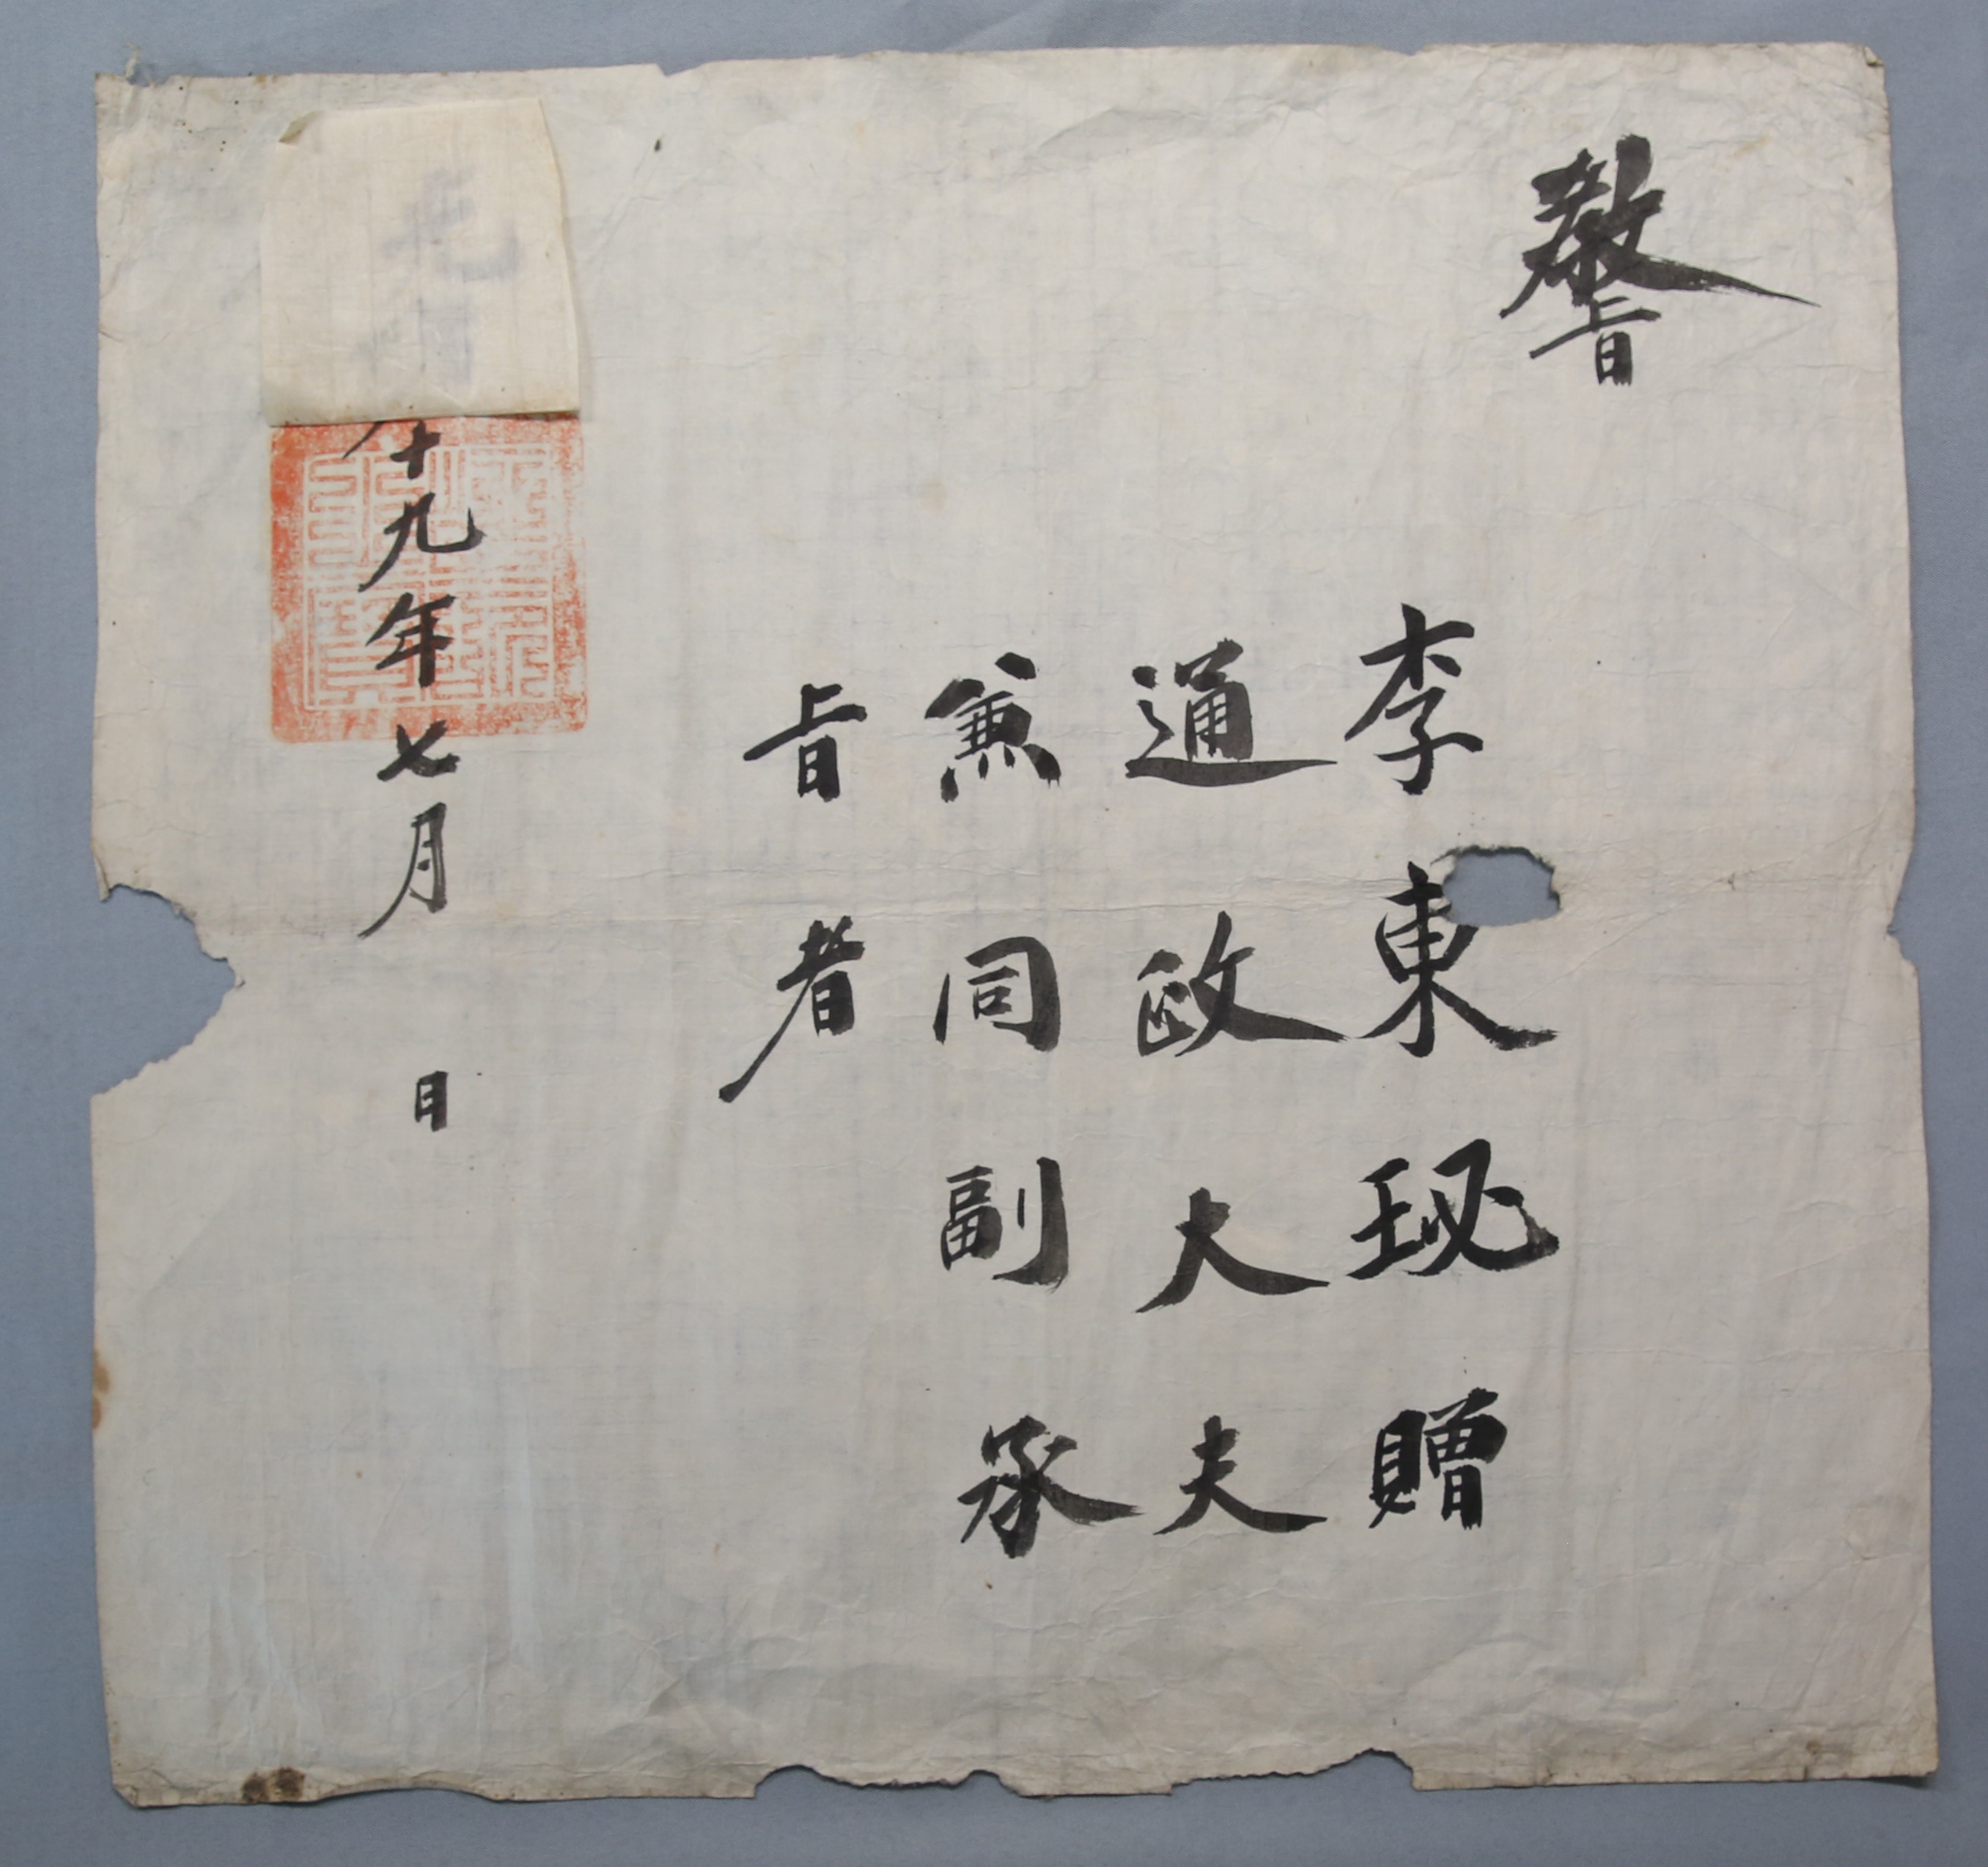 敎旨
李東珌贈
通政大夫
兼同副承
旨者
十九年七月 日